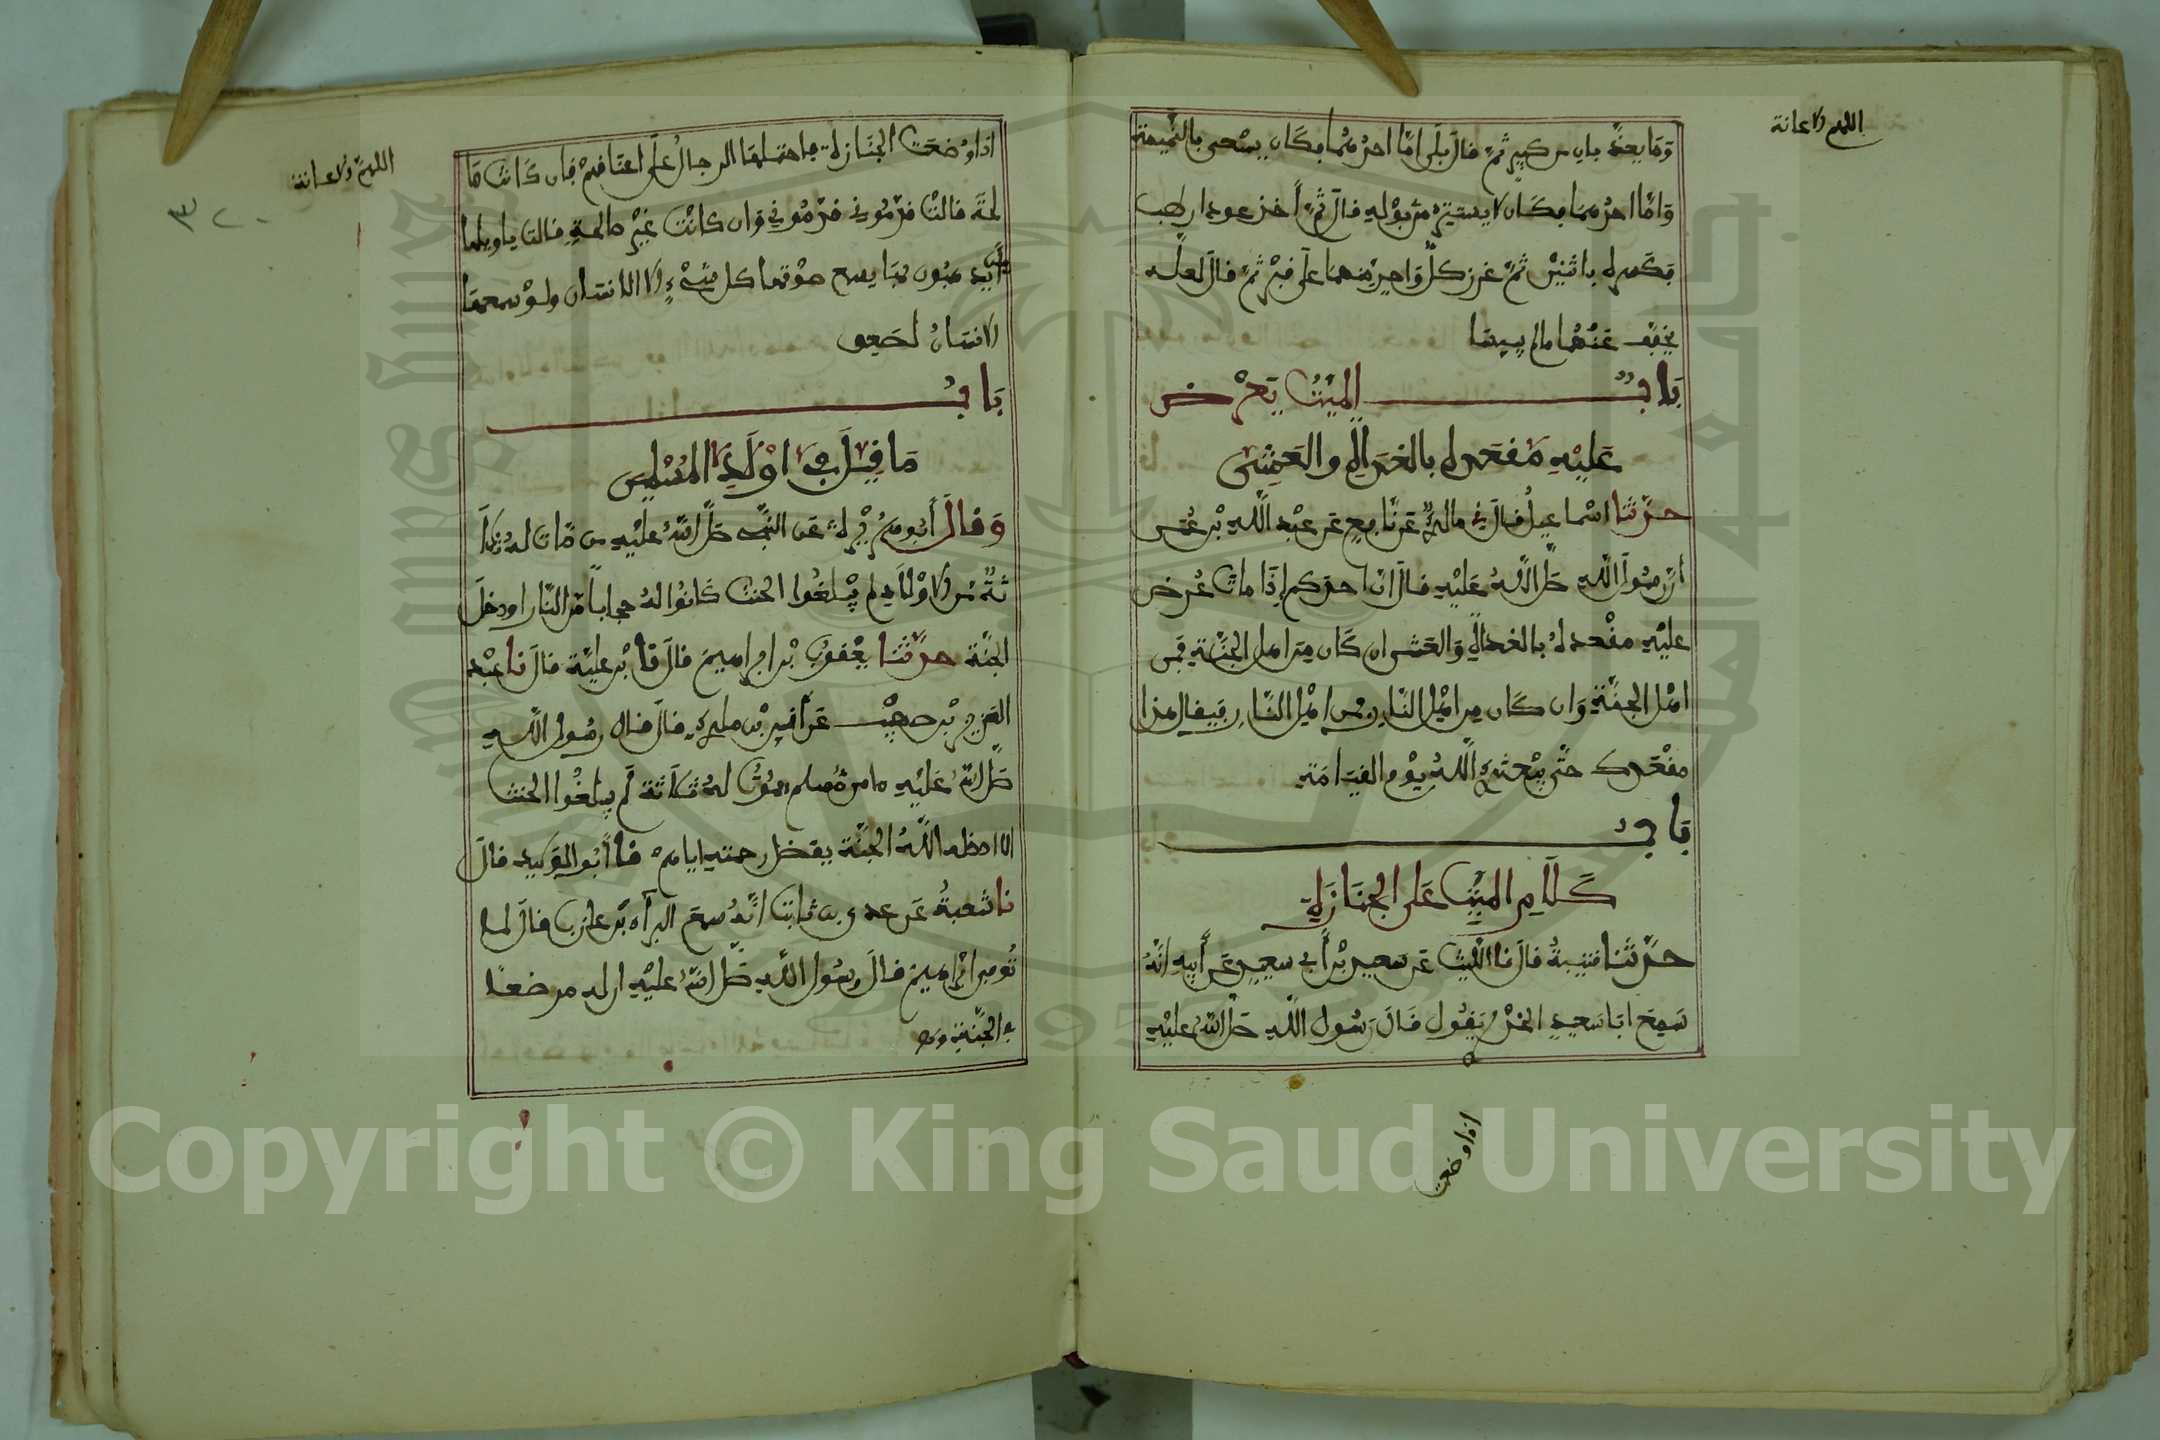 اللهم الاعانة
وَمَا يعذبان من كبير ثم قال بلى امَّا احدهما فكان يسعى بالنميمة
وَامَّا احدهما فكان لا يستتر من بوله قال ثم أخذ عودا رطبا
فكسره باثنين ثم غرز كل وَاحد منهما على قبر ثم قال لعله
يخفف عنهما ما لم ييبسا
بَابُ الميت يعرض
عَليه مقعده بالغداة والعشي
حدثنا اسماعيل قال ني مالك عن نافع عن عبد الله بن عمر
أن رسول الله صلى الله عليه قال ان احدكم إذا مات عرض
عليه مقعده بالغداة والعشي ان كان من اهل الجنة فمن
اهل الجنة وان كان من اهل النار فمن اهل النار فيقال هذا
مقعدك حتى يبعثه الله يوم القيامة
بَابُ
كلام الميت على الجنازة
حدثنا قتيبة قال نا الليث عن سعيد بن أبي سعيد عن أبيه انه
سمع ابا سعيد الخدري يقول قال رسول الله صلى الله عليه
اذا وضعت
اللهم الاعانة
٣٢٠
اذا وضعت الجنازة فاحتملها الرجال على اعناقهم فان كانت صا
لحة قالت قدموني قدموني وان كانت غير صالحة قالت ياويلها
أين يذهبون بها يسمع صوتها كل شيء الا الانسان ولو سمعها
الانسان لصعق
بَابُ
مَا قيل في اولاد المسلمين
وقال أبو هريرة عن النبي صلى الله عليه من مات له ثلا
ثة من الاولاد لم يبلغوا الحنث كانوا له حجابا من النار او دخل
الجنة حدثنا يعقوب بن ابراهيم قال نا بن علية قال نا عبد
العزيز بن صهيب عن أنس بن ملك قال قال رسول الله
صلى الله عليه ما من مسلم يموت له ثلاثة لم يبلغوا الحنث
الا ادخله الله الجنة بفضل رحمته اياهم نا أبو الوليد قال
نا شعبة عن عدي بن ثابت انه سمع البراء بن عازب قال لما
توفي ابراهيم قال رسول الله صلى الله عليه ان له مرضعا
في الجنة
Copyright © King Saud University